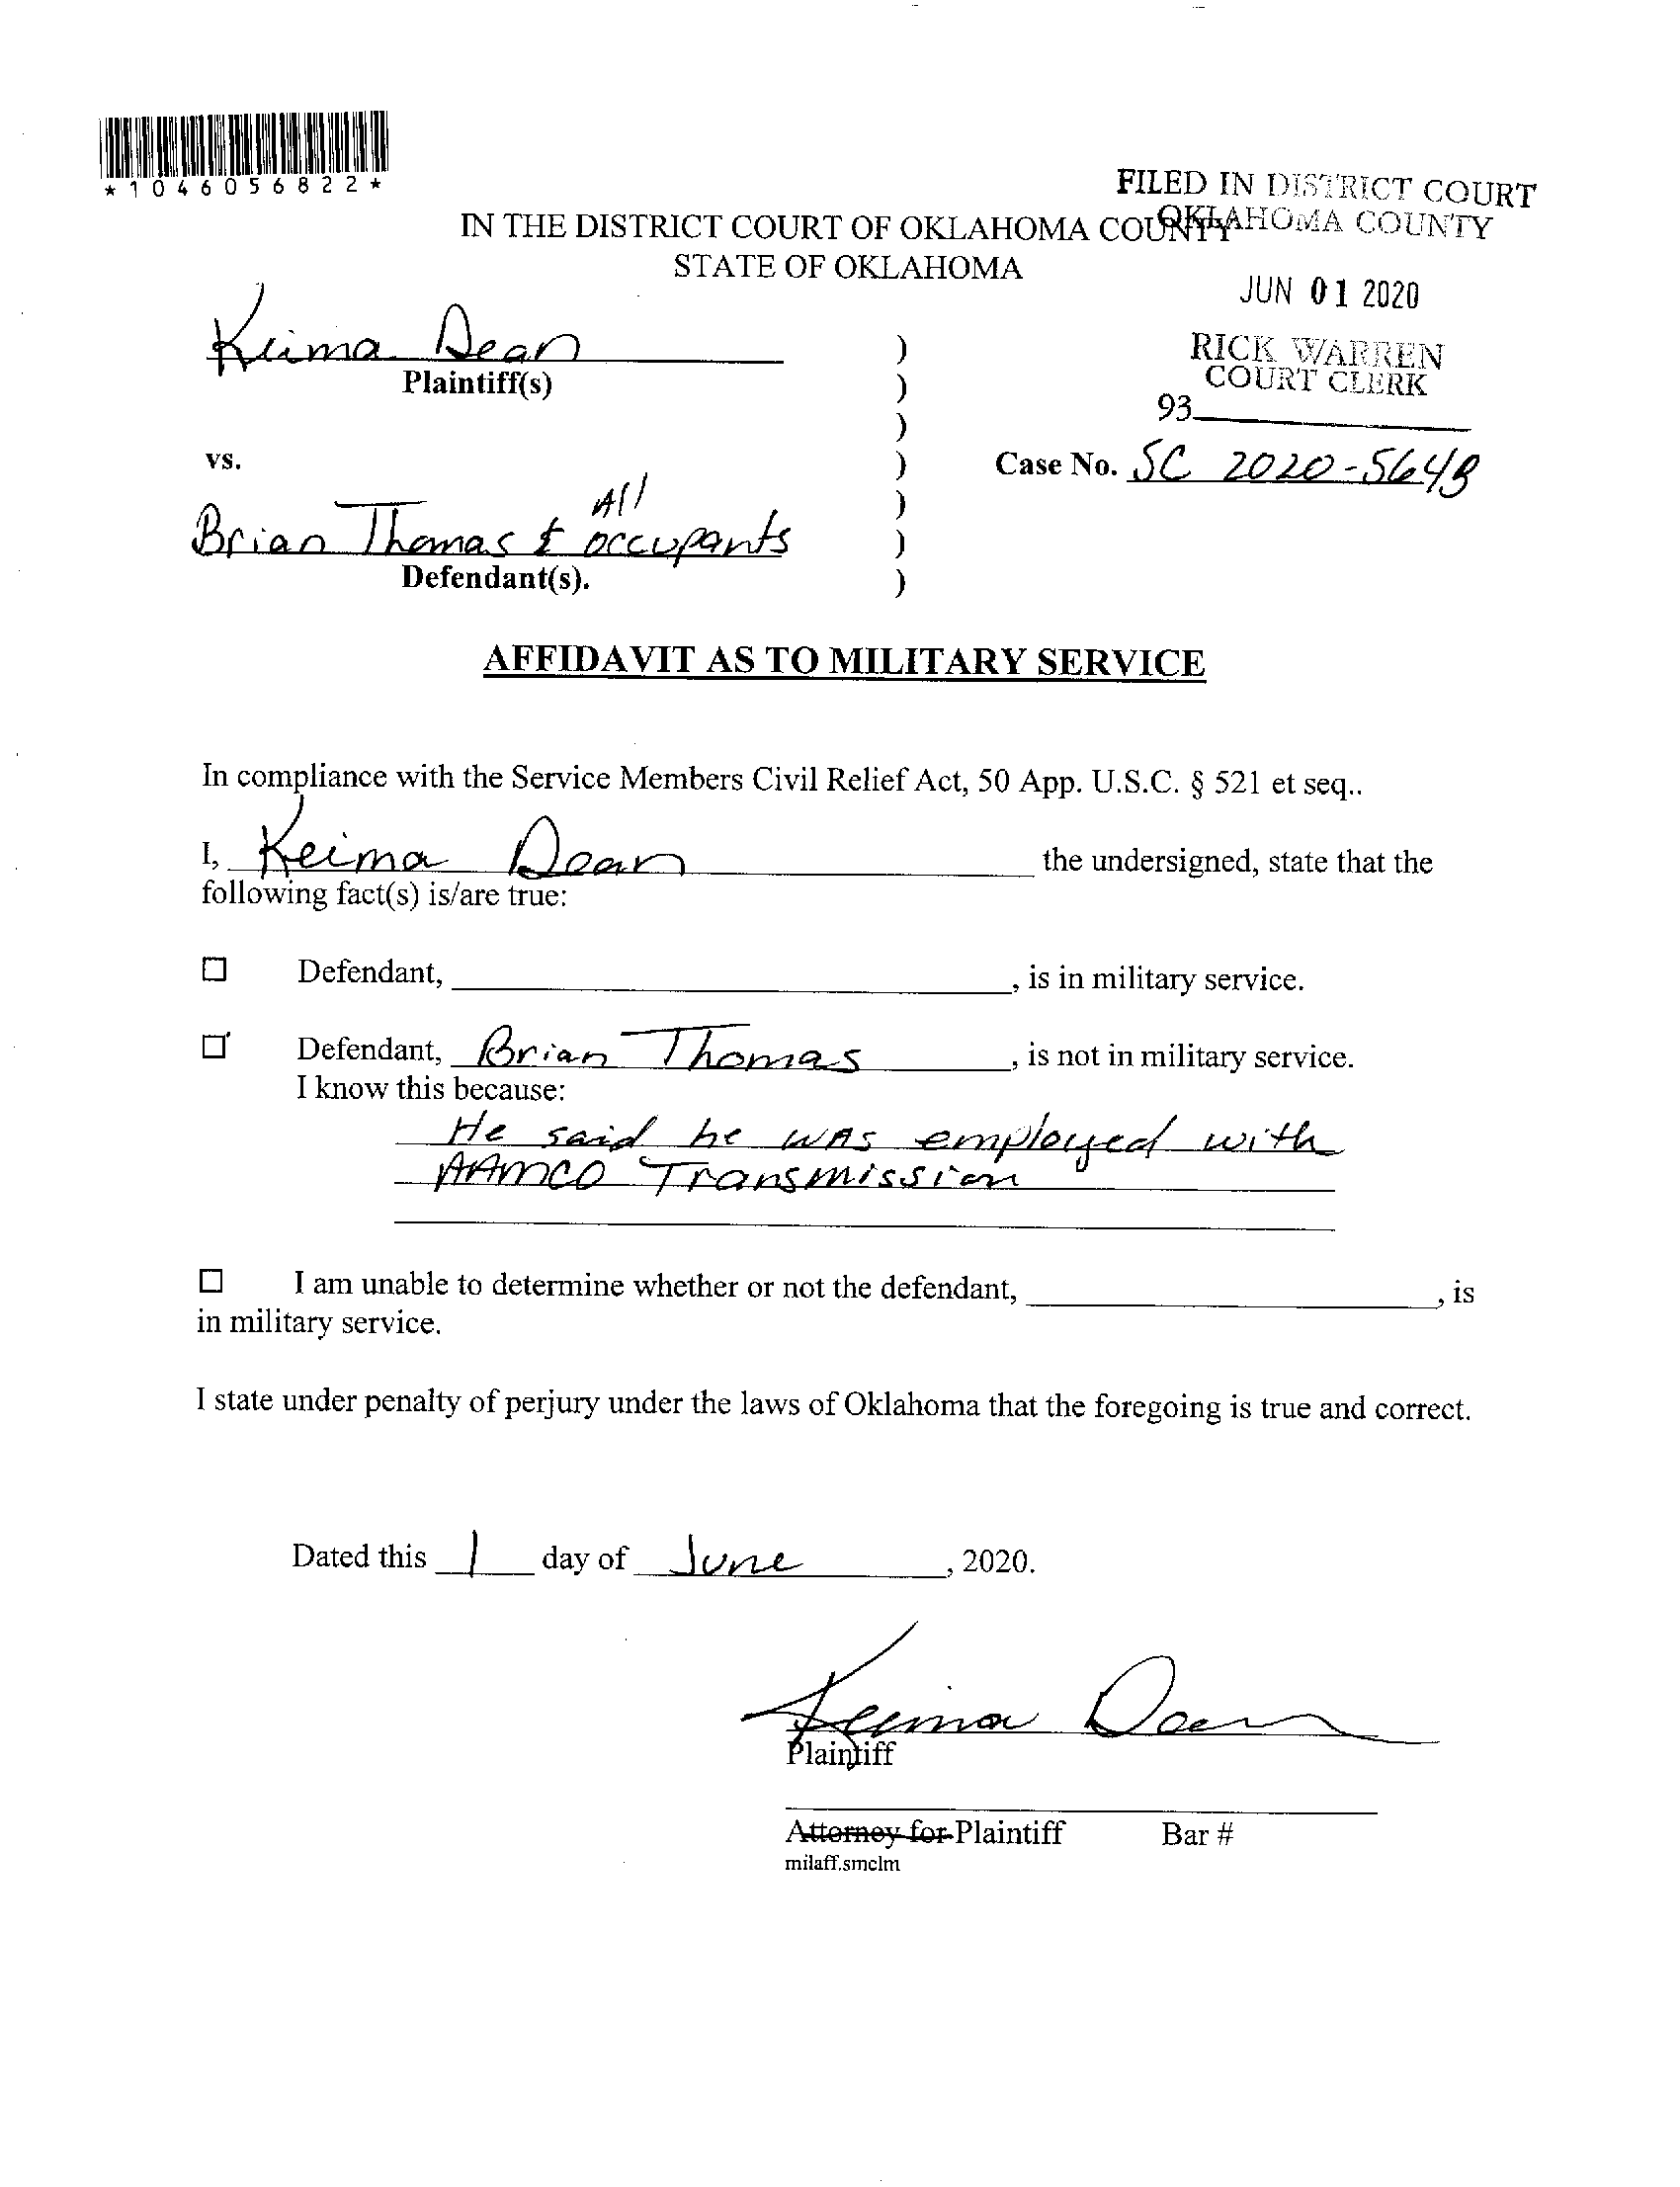 *1046056822*
FILED IN DISTRICT COURT
OKLAHOMA COUNTY
IN THE DISTRICT COURT OF OKLAHOMA COUNTY
STATE OF OKLAHOMA
JUN 01 2020
Keima Dean
Plaintiff(s)
RICK WARREN
COURT CLERK
93
vs.
Case No. SC 2020-5643
All
Brian Thomas & occupants
Defendant(s).
AFFIDAVIT AS TO MILITARY SERVICE
In compliance with the Service Members Civil Relief Act, 50 App. U.S.C. § 521 et seq..
I, Keima Dean the undersigned, state that the
following fact(s) is/are true:
☐ Defendant, , is in military service.
☐ Defendant, Brian Thomas, is not in military service.
I know this because:
He said he was employed with
AAMCO Transmission
☐ I am unable to determine whether or not the defendant, , is
in military service.
I state under penalty of perjury under the laws of Oklahoma that the foregoing is true and correct.
Dated this 1 day of June, 2020.
Keima Dean
Plaintiff
Attorney for Plaintiff Bar #
milaff.smclm